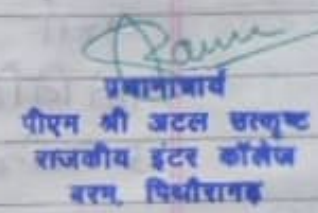 प्रधानाचार्य
पीएम श्री अटल उत्कृष्ट
राजकीय इंटर कॉलेज
बरम, पिथौरागढ़